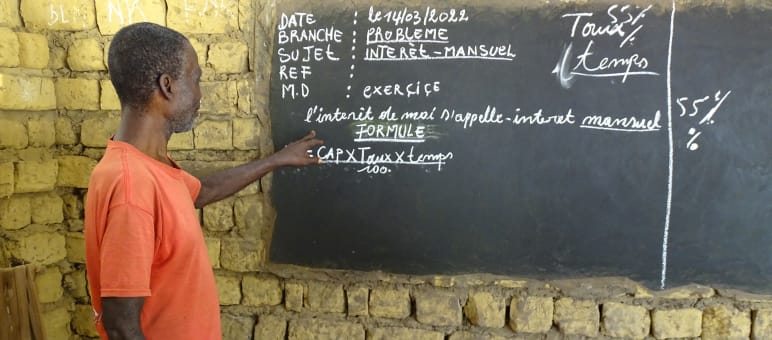 DATE : le 14/03/2022
BRANCHE : PROBLEME
SUJET : INTERÊT-MANSUEL
REF :
M.D : exerçiçe
l'interêt de moi s'appelle-interet mansuel
FORMULE
= CAP X Taux X temps
100.
Taux 55%
temps
55%
%